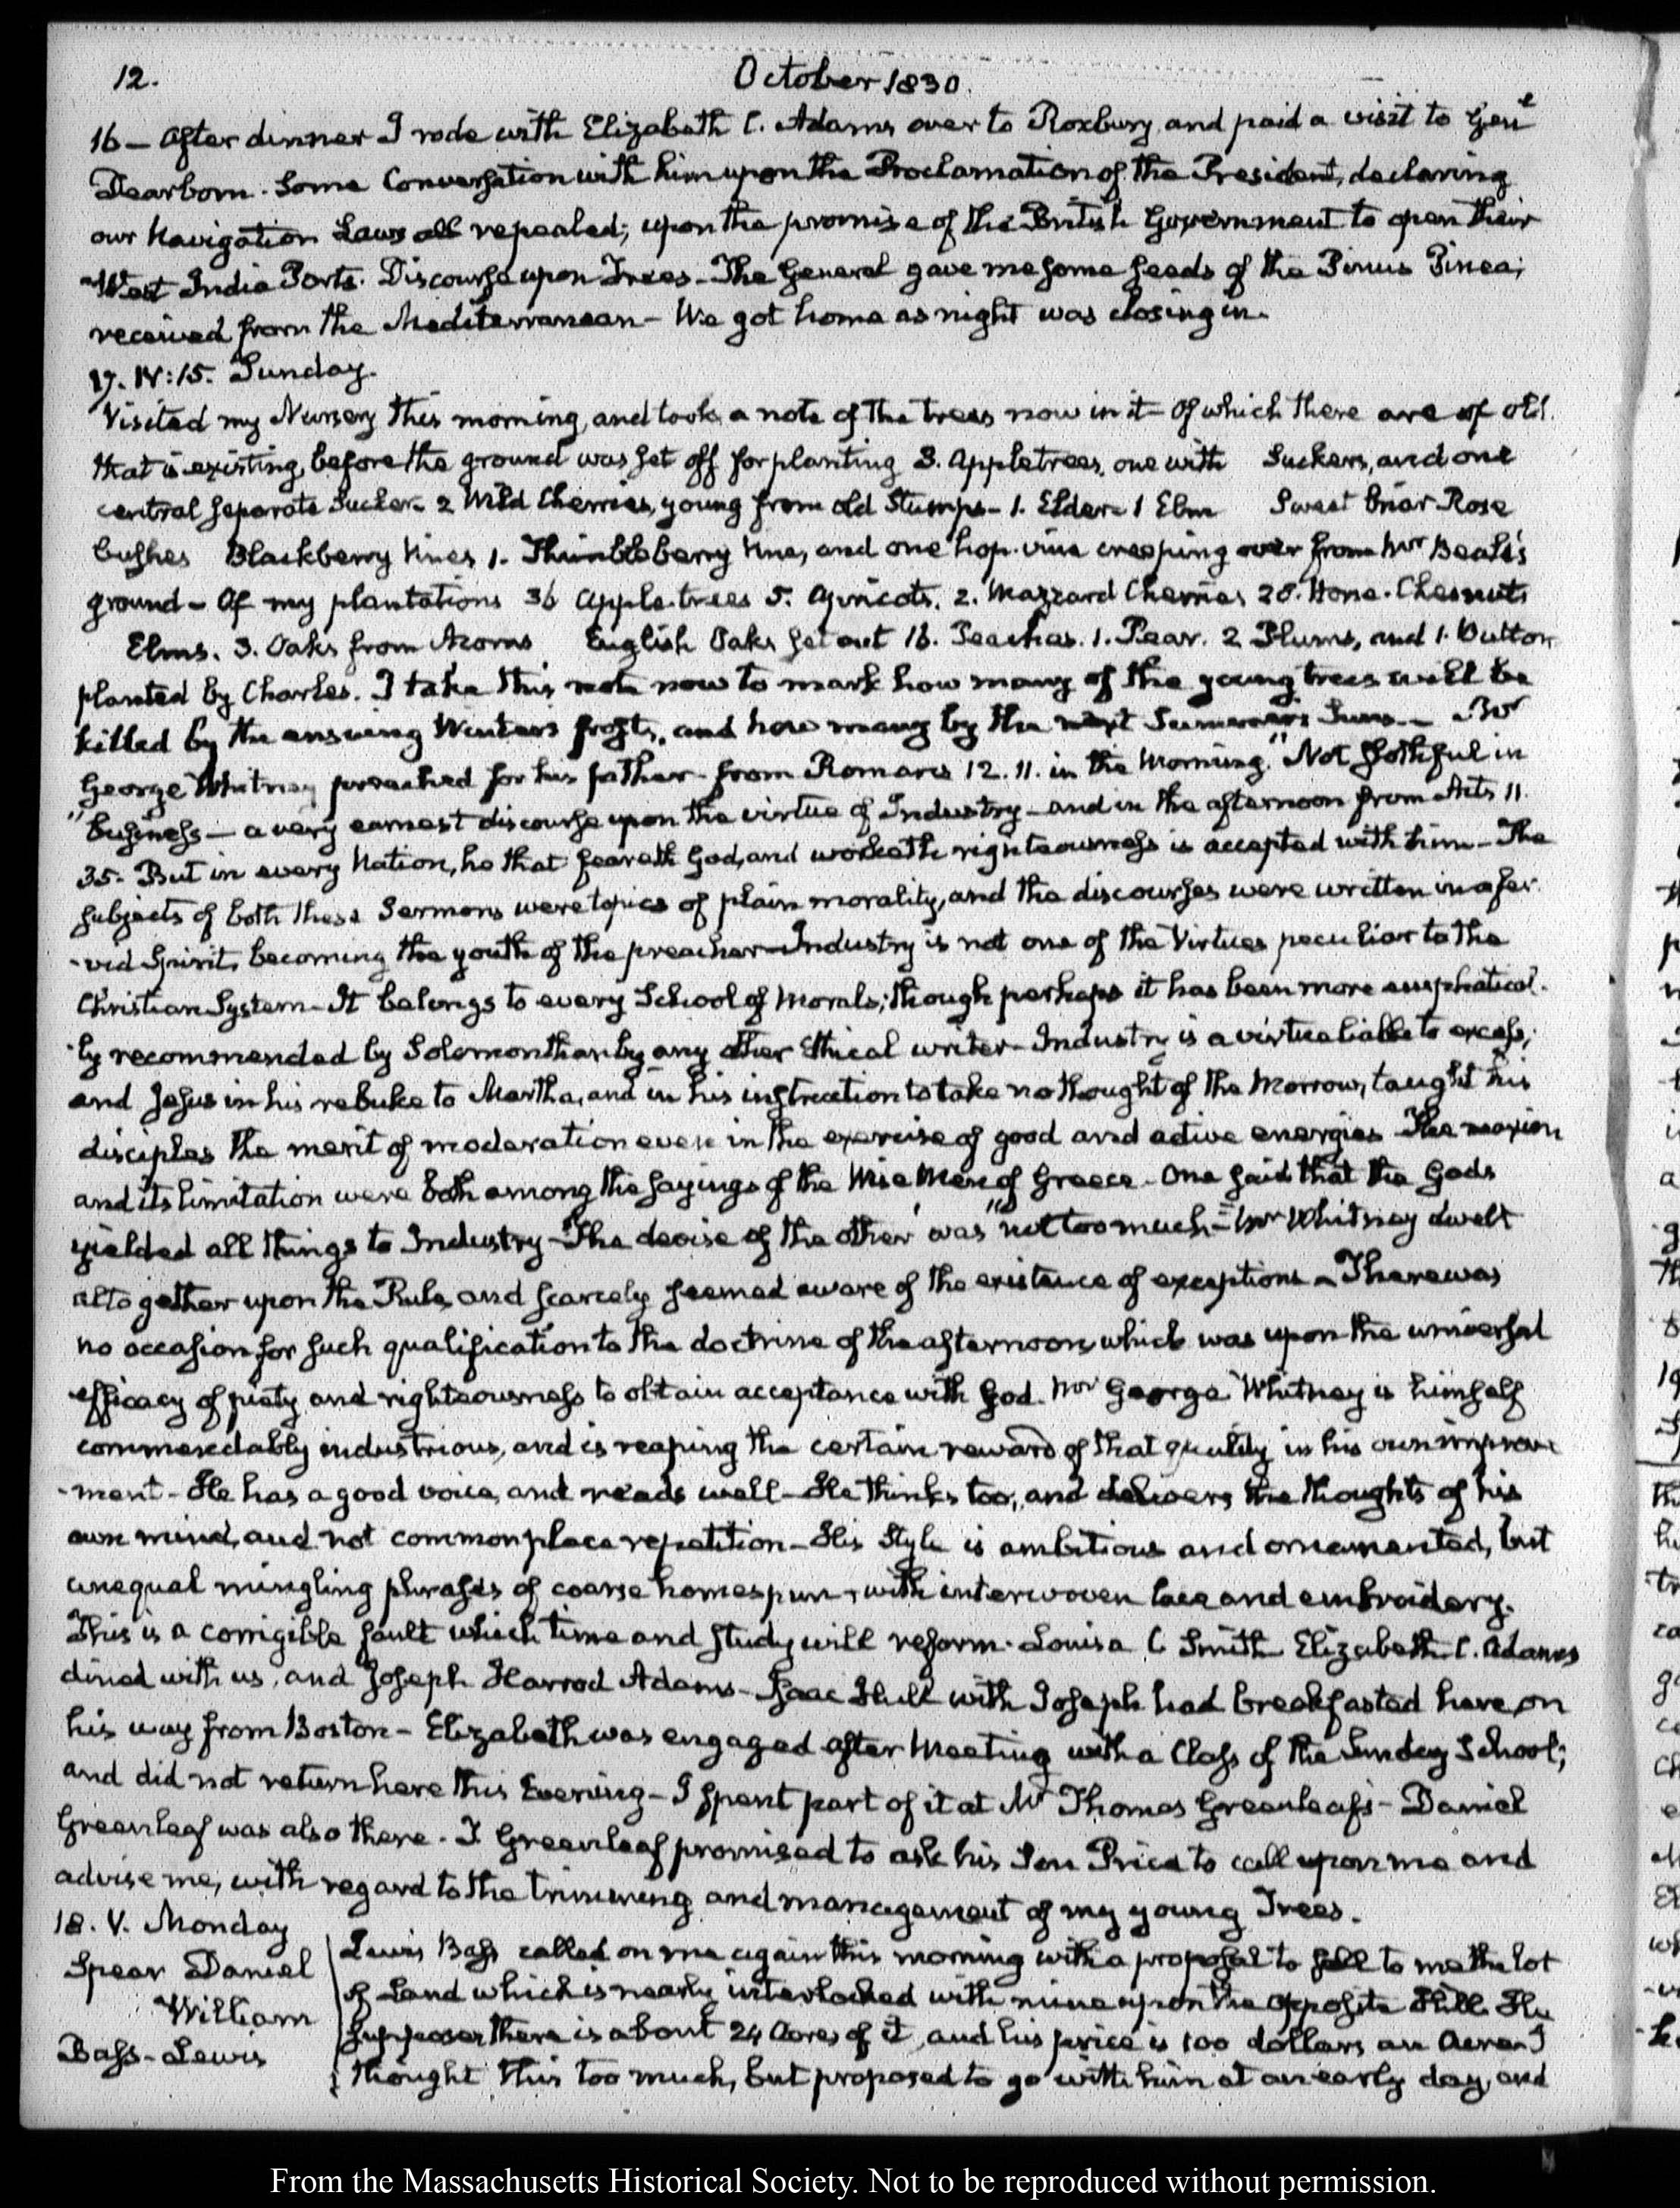 12. October 1830.
16 — After dinner I rode with Elizabeth C. Adams over to Roxbury, and paid a visit to Genl
Dearborn. Some Conversation with him upon the Proclamation of the President, declaring
our Navigation Laws all repealed; upon the promise of the British Government to open their
West India Ports. Discourse upon Trees - The General gave me some seeds of the Pinus Pinea;
received from the Mediterranean - We got home as night was closing in.
17. IV:15. Sunday.
Visited my Nursery this morning, and took a note of the trees now in it - Of which there are of old.
that is existing, before the ground was set off for planting 3. Appletrees, one with Suckers, and one
central separate Sucker - 2 Wild Cherries, young from old Stumps - 1. Elder - 1 Elm Sweet briar Rose
bushes Blackberry Vines 1. Thimbleberry Vine, and one hop-vine creeping over from Mr Beale's
ground - Of my plantations 36 Apple trees 5. Apricots. 2. Mazzard Cherries 28. Horse-Chesnuts
Elms. 3. Oaks from Acorns English Oaks set out 16. Peaches. 1. Pear. 2 Plums, and 1. Button
planted by Charles. I take this note now to mark how many of the young trees will be
killed by the ensuing Winters frosts, and how many by the next Summer's Suns -- Mr
George Whitney preached for his father - from Romans 12. 11. in the Morning. "Not slothful in
"business — a very earnest discourse upon the virtue of Industry - and in the afternoon from Acts 11.
35. But in every Nation, he that feareth God, and worketh righteousness is accepted with him - The
subjects of both these Sermons were topics of plain morality, and the discourses were written in a fer-
-vid Spirit, becoming the youth of the preacher - Industry is not one of the Virtues peculiar to the
Christian System - It belongs to every School of Morals; though perhaps it has been more emphatical-
-ly recommended by Solomon than by any other Ethical writer - Industry is a virtue liable to excess;
and Jesus in his rebuke to Martha, and in his instruction to take no thought of the Morrow, taught his
disciples the merit of moderation even in the exercise of good and active energies The maxim
and its limitation were both among the sayings of the Wise Men of Greece - One said that the Gods
yielded all things to Industry - The devise of the other was "not too much - Mr Whitney dwelt
altogether upon the Rule, and scarcely seemed aware of the existence of exceptions - There was
no occasion for such qualification to the doctrine of the afternoon, which was upon the universal
efficacy of piety and righteousness to obtain acceptance with God. Mr George Whitney is himself
commendably industrious, and is reaping the certain reward of that quality in his own improve
-ment - He has a good voice, and reads well - He thinks too, and delivers the thoughts of his
own mind, and not commonplace repetition - His Style is ambitious and ornamented, but
unequal mingling phrases of coarse homespun, with interwoven lace and embroidery.
This is a corrigible fault which time and study will reform. Louisa C Smith Elizabeth C. Adams
dined with us, and Joseph Harrod Adams - Isaac Hull with Joseph had breakfasted here, on
his way from Boston - Elizabeth was engaged after Meeting with a Class of the Sunday School;
and did not return here this Evening - I spent part of it at Mr Thomas Greenleaf's - Daniel
Greenleaf was also there. T Greenleaf promised to ask his Son Price to call upon me and
advise me, with regard to the trimming and management of my young Trees.
18. V. Monday
Spear Daniel
William
Bass - Lewis
Lewis Bass called on me again this morning with a proposal to sell to me the lot
of Land which is nearly interlocked with mine upon the opposite Hill. He
supposes there is about 24 Acres of it, and his price is 100 dollars an Acre. I
thought this too much, but proposed to go with him at an early day, and
From the Massachusetts Historical Society. Not to be reproduced without permission.